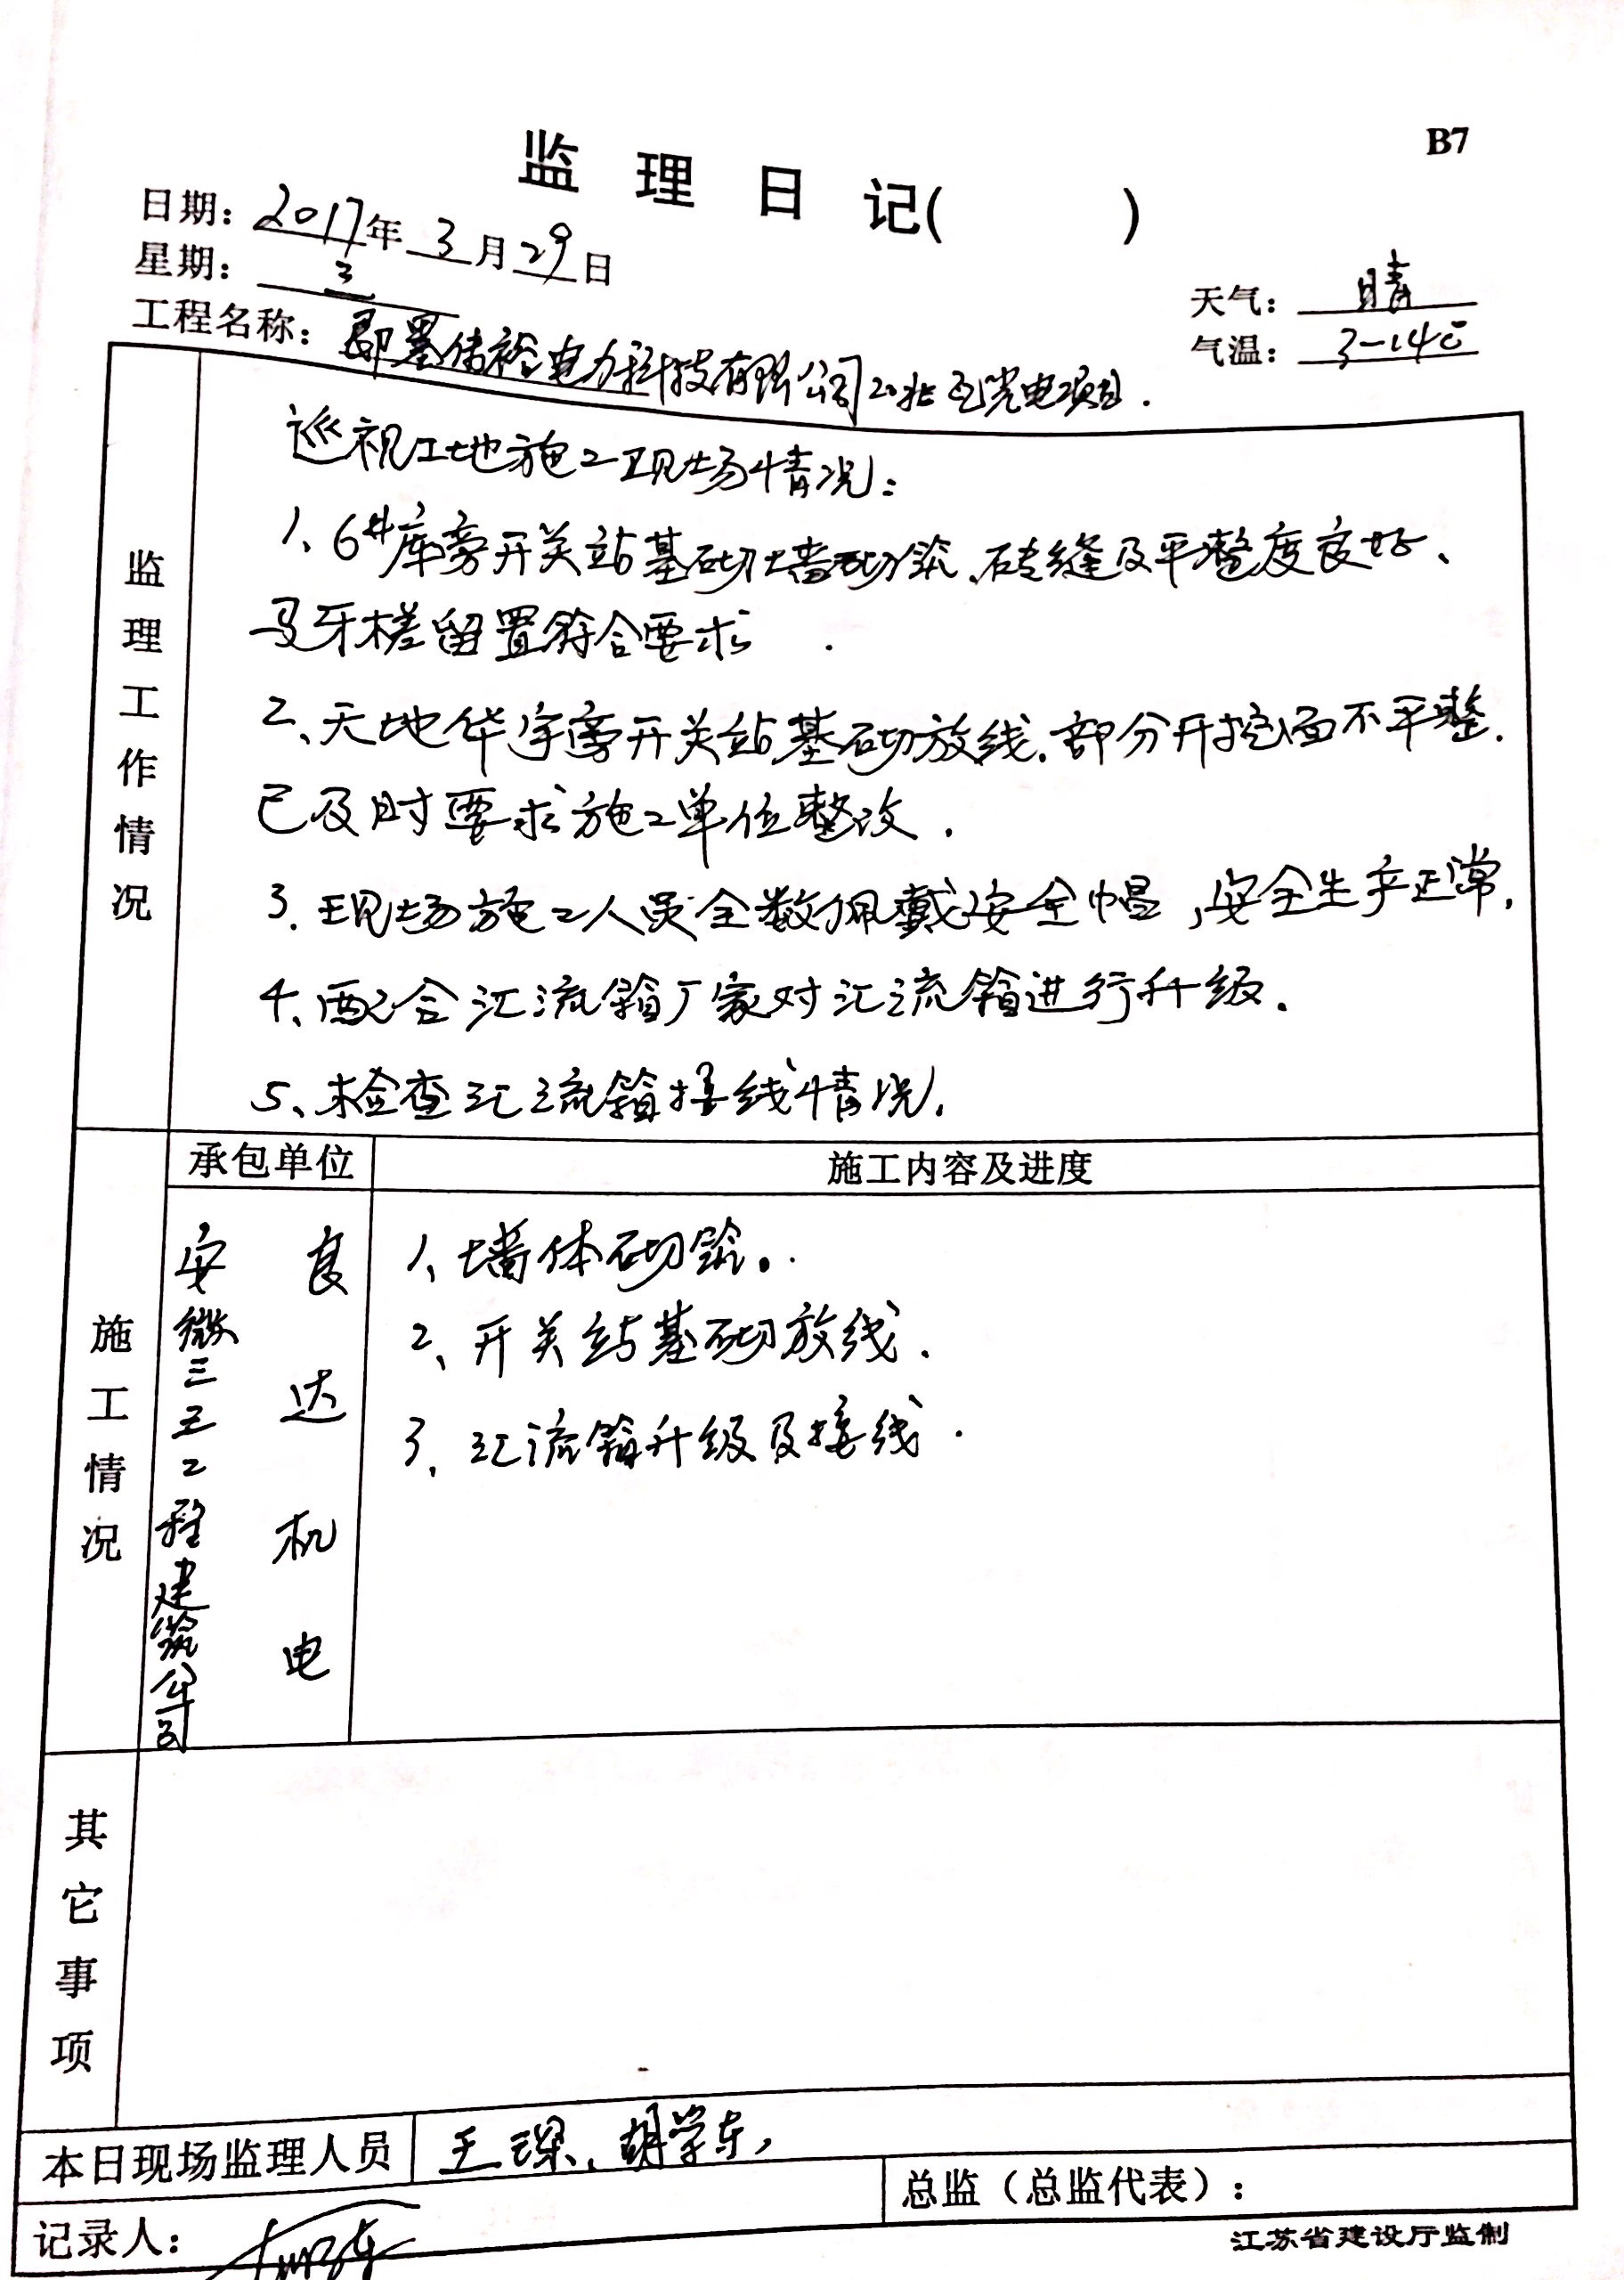 B7
监理日记( )
日期：2017年3月29日
星期：三
天气：晴
气温：3-14℃
工程名称：即墨伟裕电力科技有限公司20兆瓦光电项目.
监理工作情况
巡视工地施工现场情况：
1、6#库旁开关站基础墙砌筑、砖缝及平整度良好、
马牙槎留置符合要求.
2、天地华宇旁开关站基础放线.部分开挖面不平整.
已及时要求施工单位整改.
3.现场施工人员全数佩戴安全帽,安全生产正常,
4、配合汇流箱厂家对汇流箱进行升级.
5、检查汇流箱接线情况.
承包单位
施工内容及进度
施工情况
安徽三工程建筑公司
良达机电
1、墙体砌筑.
2、开关站基础放线.
3、汇流箱升级及接线.
其它事项
本日现场监理人员 王琛、胡学东,
总监（总监代表）：
记录人：
江苏省建设厅监制